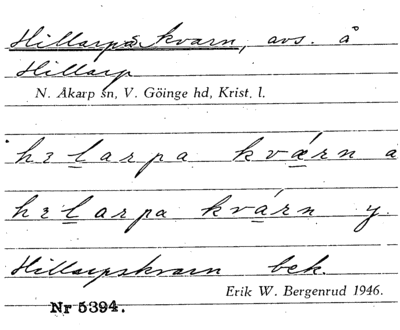 Hillarps kvarn, avs. å
Hillarp
N. Åkarp sn, V. Göinge hd, Krist. l.
hɛlarpa kvǽrn a
hɛlarpa kvárn y.
Hillarpskvarn bek.
Erik W. Bergenrud 1946.
Nr 5394.